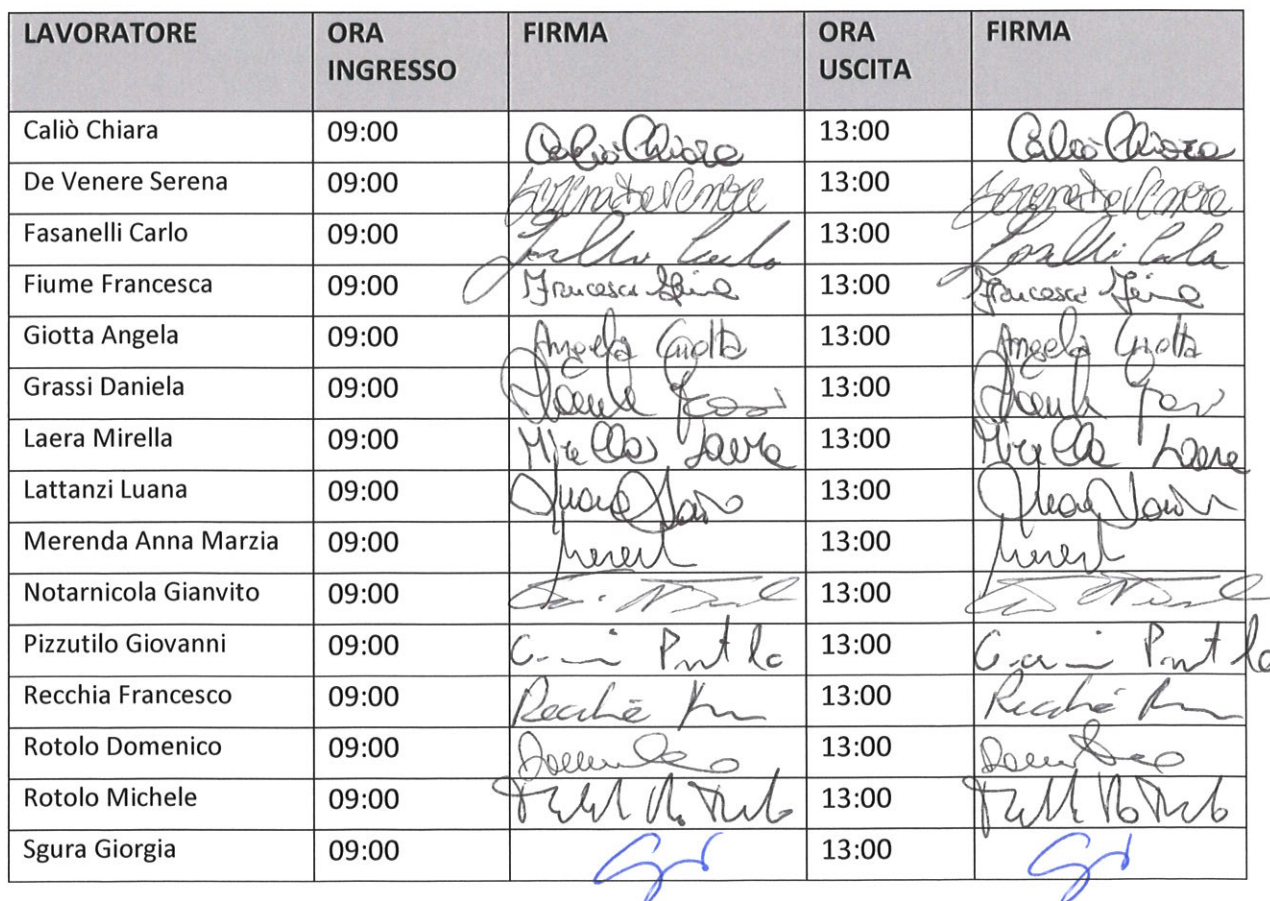 LAVORATORE ORA INGRESSO FIRMA ORA USCITA FIRMA
Caliò Chiara 09:00 Caliò Chiara 13:00 Caliò Chiara
De Venere Serena 09:00 Serena De Venere 13:00 Serena De Venere
Fasanelli Carlo 09:00 13:00
Fiume Francesca 09:00 Francesca Fiume 13:00 Francesca Fiume
Giotta Angela 09:00 Angela Giotta 13:00 Angela Giotta
Grassi Daniela 09:00 13:00
Laera Mirella 09:00 Mirella Laera 13:00 Mirella Laera
Lattanzi Luana 09:00 13:00
Merenda Anna Marzia 09:00 13:00
Notarnicola Gianvito 09:00 13:00
Pizzutilo Giovanni 09:00 13:00
Recchia Francesco 09:00 13:00
Rotolo Domenico 09:00 13:00
Rotolo Michele 09:00 13:00
Sgura Giorgia 09:00 13:00